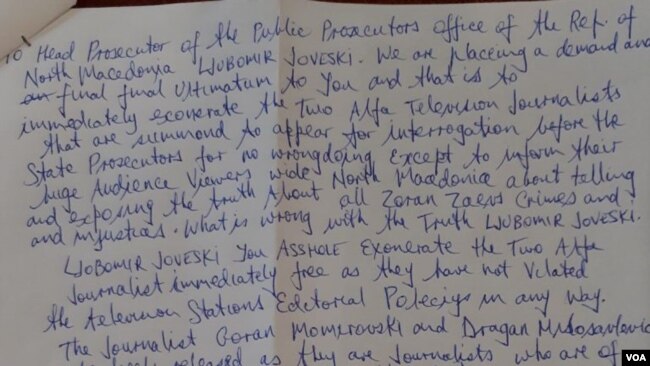 To Head Prosecutor of the Public Prosecutors office of the Rep. of
North Macedonia LJUBOMIR JOVESKI. We are placeing a demand and
final final Ultimatum to You and that is to
immediately exonerate the Two Alfa Television Journalists
that are summond to appear for interrogation before the
State Prosecutors for no wrongdoing Except to inform their
huge Audience Viewers wide North Macedonia about telling
and exposing the truth About all Zoran Zaevs Crimes and
and injustices. What is wrong with the Truth LJUBOMIR JOVESKI.
LJUBOMIR JOVESKI You ASSHOLE Exonerate the Two Alfa
Journalist immediately free as they have not Vilated
the television Stations Edetorial Poleciys in any way.
The Journalist Goran Momirovski and Dragan Milosavlevic
released as they are Journalists who are of
VOA